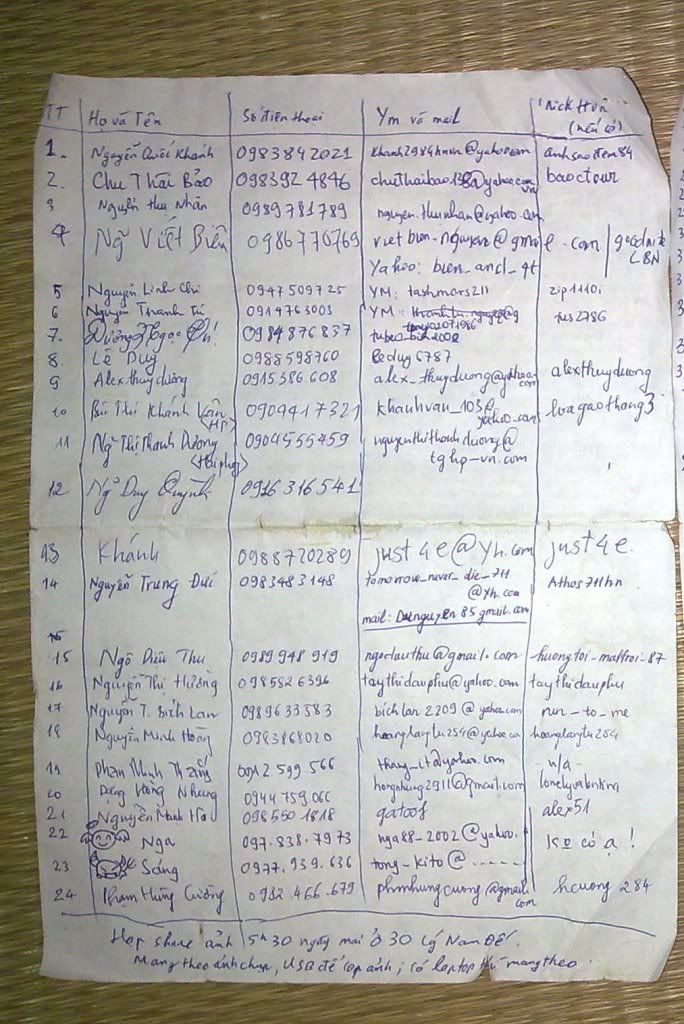 TT Họ và Tên Số điện thoại Ym và mail 'Nick HVN'
(nếu có)
1. Nguyễn Quốc Khánh 0983842021 khanh2984hnvn@yahoo.com anhsaodem84
2. Chu Thái Bảo 098392 4846 chuthaibao138@yahoo.com baoctour
vn
3 Nguyễn thu Nhàn 0989781789 nguyen.thunhan@yahoo.com
4 Ng̃ Viết Biên 0986770769 vietbien-nguyen@gmail.com
LBN
Yahoo: bien_and_qt
5 Nguyễn Linh Chi 0947509725 YM: tashmars211 zip1110i
6 Nguyễn Thanh Tú 0914763003 YM:
7. Dương Ngọc 0984876837
8. Lê Duy 0988598760 leduy6787
9 Alexthuyduong 0915.386.608 alex_thuyduong@yahoo alexthuyduong
com
10 Bùi Thị Khánh Vân 0909417321 khanhvan_103@ luagaothang3
<HP> yahoo.com
11 Ng̃ Thị Thanh Dương 0904555459 nguyenthithanhduong@
<Hải phg> tghp-vn.com
12 Ng̃ Duy Quỳnh 0916316541
13 Khánh 0988720289 just4e@yh.com just4e.
14 Nguyễn Trung Đức 0983483148 tomorrow_never_die_711 Athos711hn
@yh.com
mail: Ducnguyen85gmail.com
15 Ngô Diệu Thu 0989948919 ngodieuthu@gmail.com huongtoi_mattroi_87
16 Nguyễn Thị Hường 098 5526396 taythidauphu@yahoo.com taythidauphu
17 Nguyễn T. Bích Lan 0989633583 bichlan2209@yahoo.com run_to_me
18 Nguyễn Minh Hoàng 0983868020 hoanglaytu254@yahoo.com hoanglaytu254
19 Phan Minh Thắng 0912 599 566 thang_it@yahoo.com n/a
20 Đặng Hồng Nhung 0944.759.066 hongnhung2911@gmail.com
21 Nguyễn Mạnh Hà 098550 1818 gatoof alex51
22 Nga 097.838.7973 nga88_2002@yahoo. Ko có ạ!
23 Sáng 0977.939.636 tong_kito@------
24 Phạm Hùng Cường 0982.466.679 phmhungcuong@gmail hcuong 284
com
Họp share ảnh 5h30 ngày mai ở 30 Lý Nam Đế.
Mang theo ảnh chụp, USB để cop ảnh; có laptop thì mang theo.